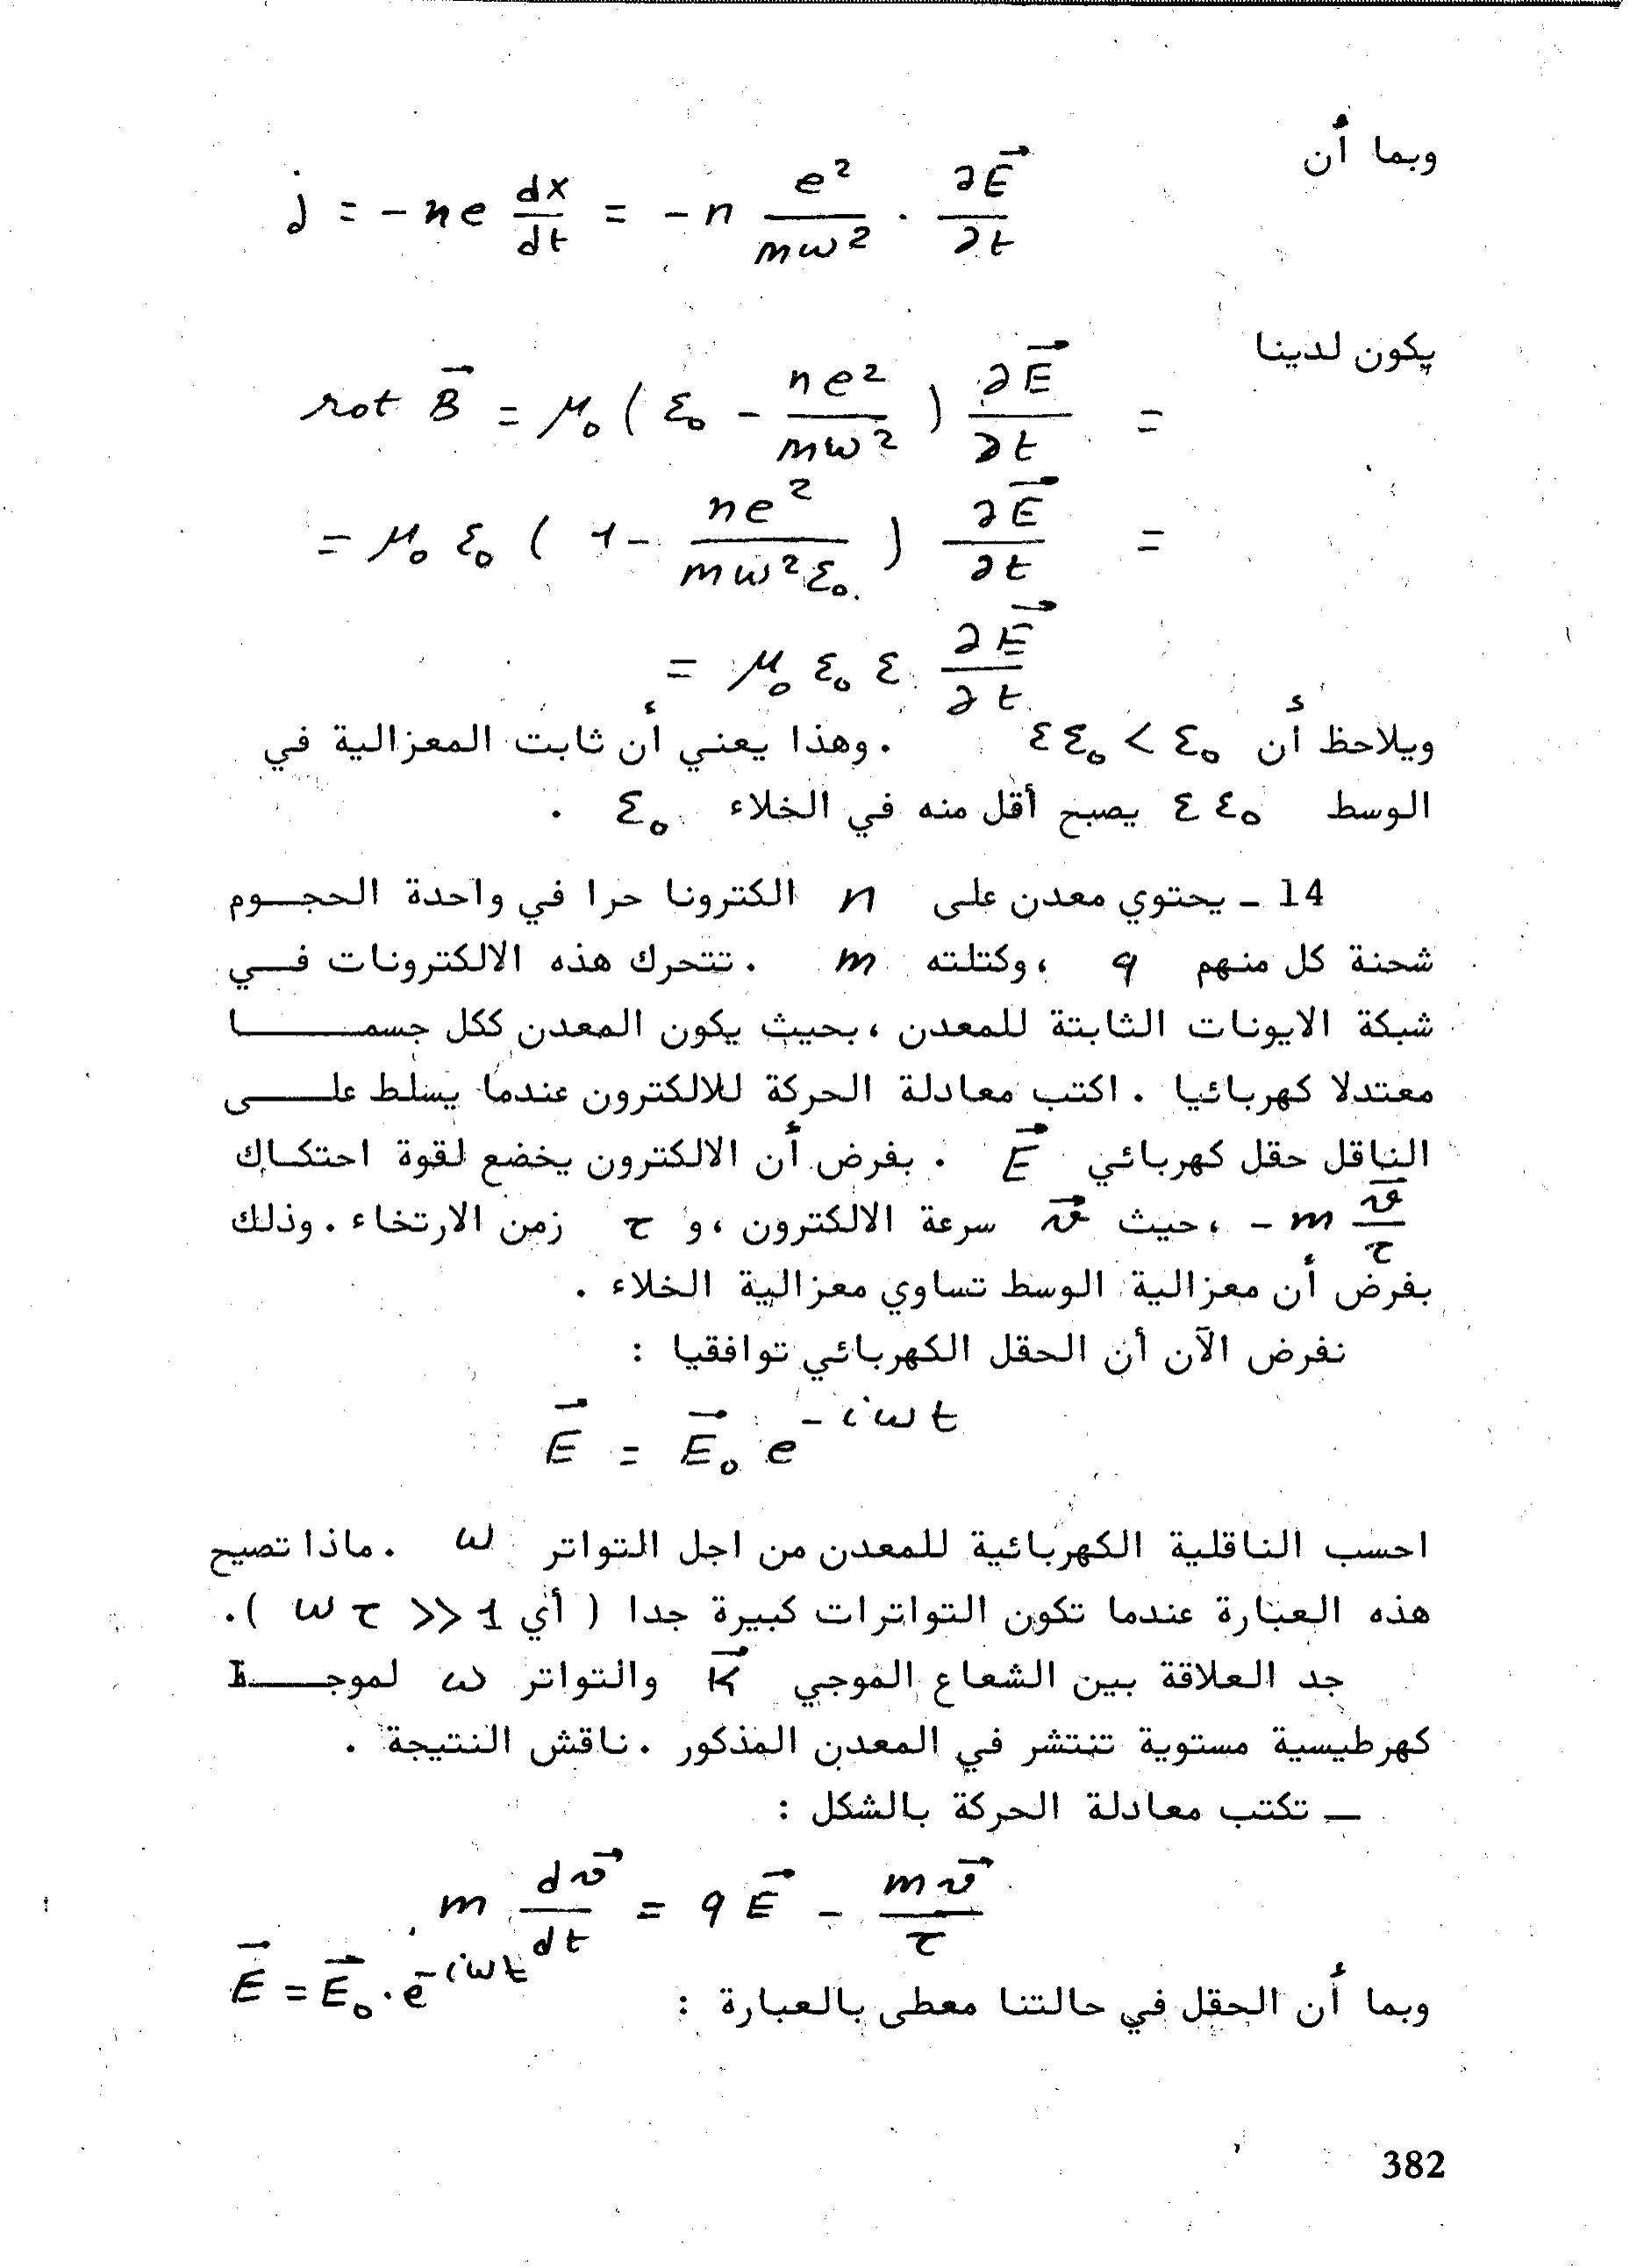 وبما أن
j = -ne dx/dt = -n e²/mω² · ∂E⃗/∂t
يكون لدينا
rot B⃗ = μ₀ ( ε₀ - ne²/mω² ) ∂E⃗/∂t =
= μ₀ ε₀ ( 1 - ne²/mω²ε₀ ) ∂E⃗/∂t =
= μ₀ ε₀ ε ∂E⃗/∂t
ويلاحظ أن ε ε₀ < ε₀ . وهذا يعني أن ثابت المعزالية في
الوسط ε ε₀ يصبح أقل منه في الخلاء ε₀ .
14 ـ يحتوي معدن على n الكترونا حرا في واحدة الحجـوم
شحنة كل منهم q ، وكتلته m . تتحرك هذه الالكترونات فـي
شبكة الايونات الثابتة للمعدن ، بحيث يكون المعدن ككل جسمـــا
معتدلا كهربائيا . اكتب معادلة الحركة للالكترون عندما يسلط علـى
الناقل حقل كهربائي E⃗ . بفرض أن الالكترون يخضع لقوة احتكـاك
- m v⃗/τ ، حيث v⃗ سرعة الالكترون ، و τ زمن الارتخاء . وذلك
بفرض أن معزالية الوسط تساوي معزالية الخلاء .
نفرض الآن أن الحقل الكهربائي توافقيا :
E⃗ = E⃗₀ e^{-iωt}
احسب الناقلية الكهربائية للمعدن من اجل التواتر ω . ماذا تصيح
هذه العبارة عندما تكون التواترات كبيرة جدا ( أي ωτ >> 1 ).
جد العلاقة بين الشعاع الموجي K⃗ والتواتر ω لموجـة
كهرطيسية مستوية تنتشر في المعدن المذكور . ناقش النتيجة .
ـ تكتب معادلة الحركة بالشكل :
m dv⃗/dt = qE⃗ - mv⃗/τ
وبما أن الحقل في حالتنا معطى بالعبارة : E⃗ = E⃗₀ · e^{-iωt}
382